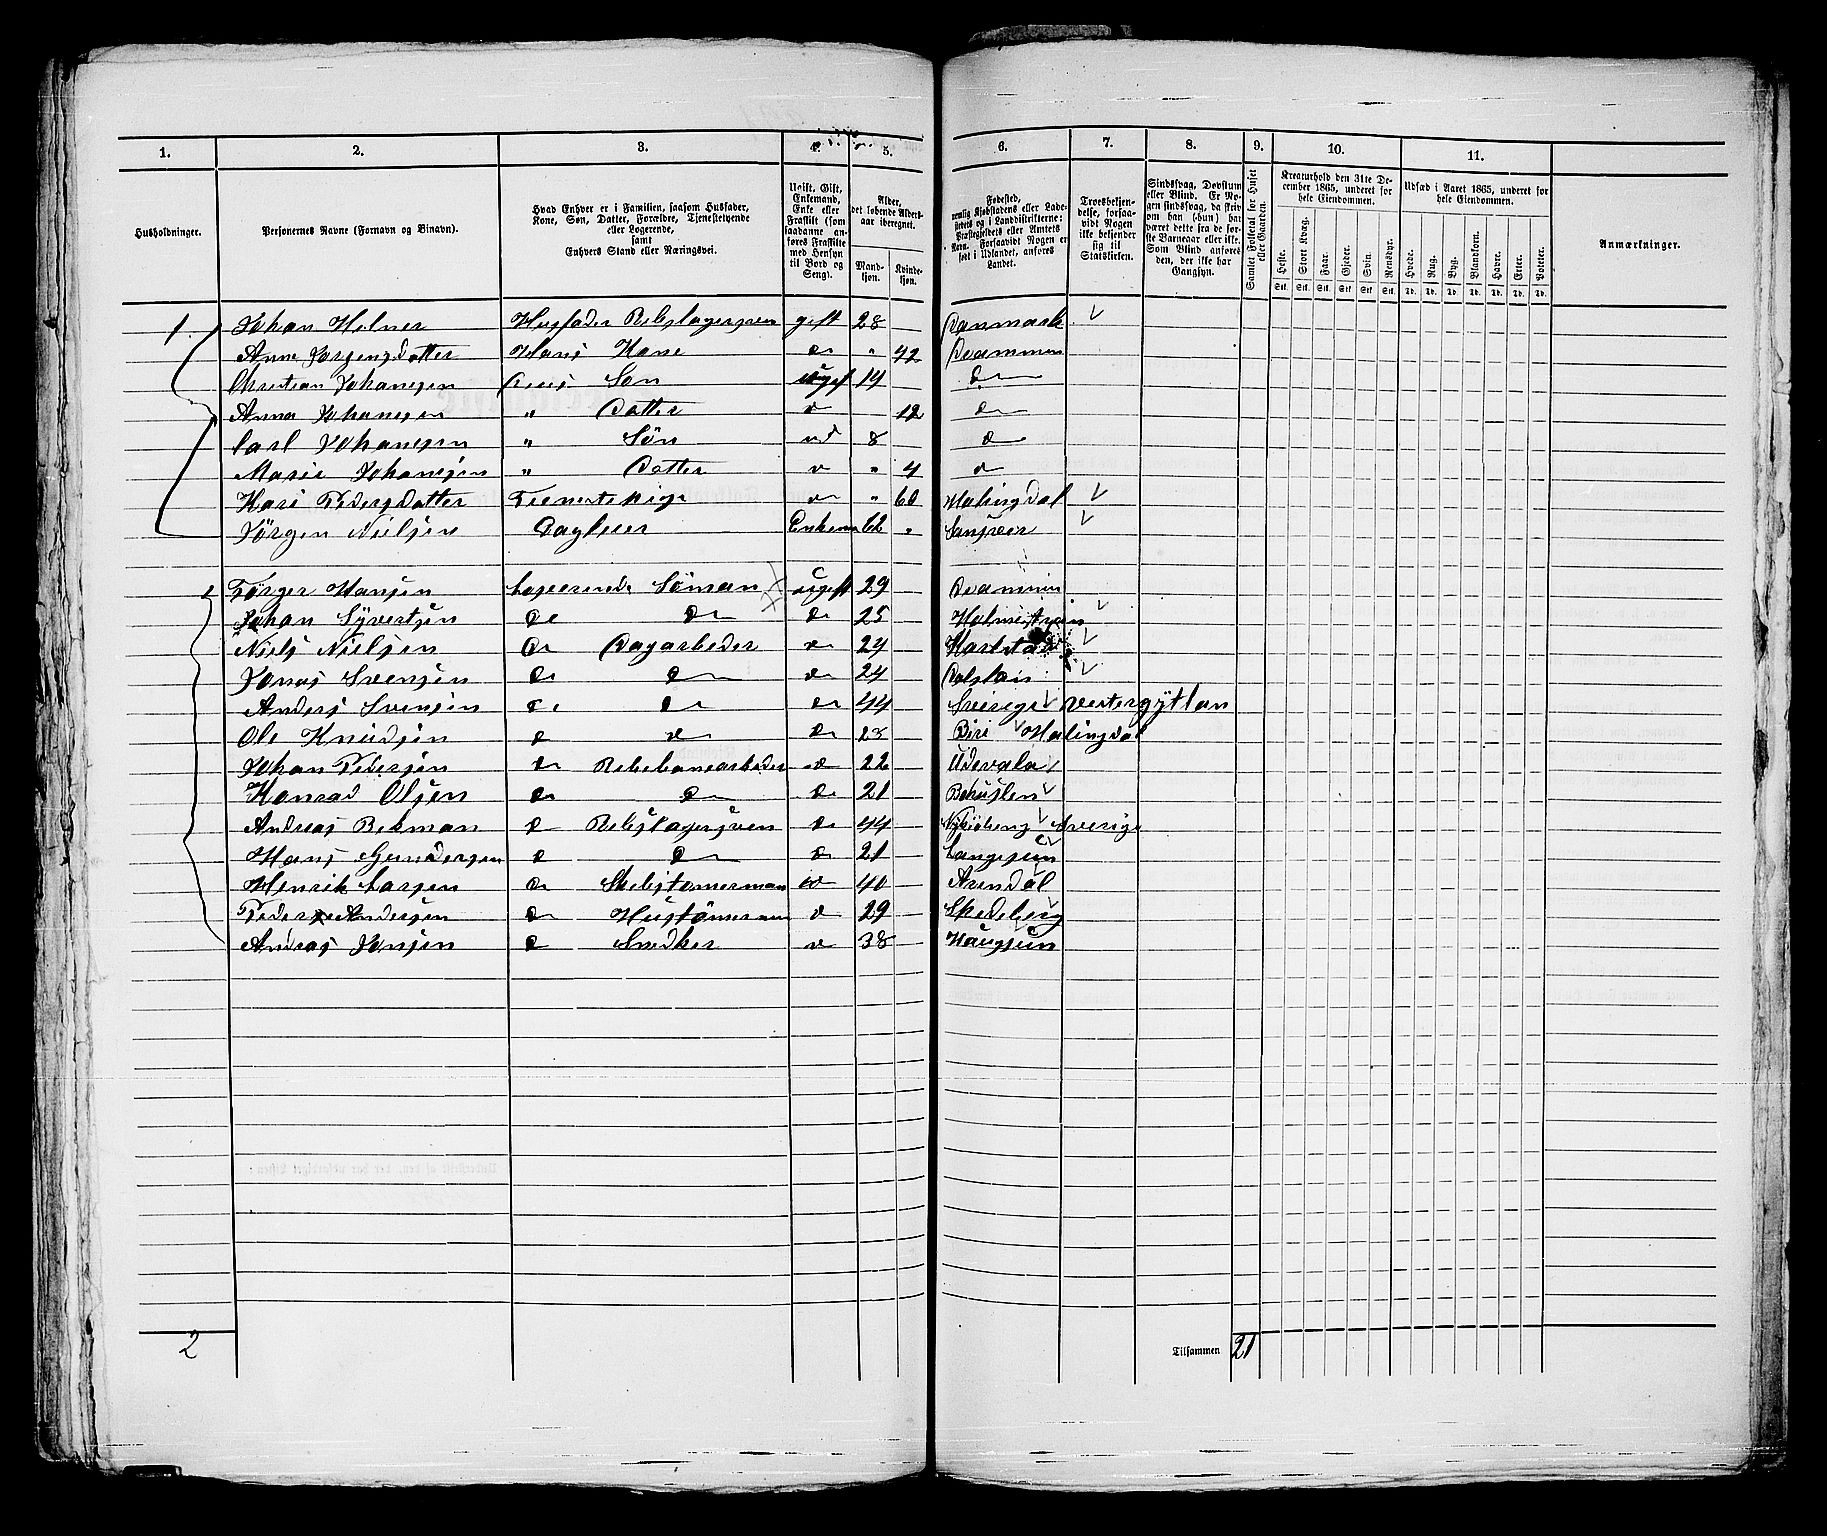 1. 2. 3. 4. 5. 6. 7. 8. 9. 10. 11.
Husholdninger.
Personernes Navne (Fornavn og Binavn).
Hvad Enhver er i Familien, saasom Husfader, Kone, Søn, Datter, Forældre, Tjenestetyende eller Logerende, samt Enhvers Stand eller Næringsvei.
Ugift, Gift, Enkemand, Enke eller Fraskilt (som saadanne anføres Fraskilte med Hensyn til Bord og Seng).
Alder, det løbende Alders-aar iberegnet.
Mand-kjøn. Kvinde-kjøn.
Fødested, nemlig Kjøbstadens eller Ladestedets og i Landdistrikterne: Præstegjeldets eller Amtets Navn. Forsaavidt Nogen er født i Udlandet, anføres Landet.
Troesbekjendelse, forsaavidt Nogen ikke bekjender sig til Statskirken.
Sindssvag, Døvstum eller Blind. Er Nogen sindssvag, da skrives om han (hun) har været dette fra de første Barneaar eller ikke. Som Blind anføres den, der ikke har Gangsyn.
Samlet Folketal for Huset eller Gaarden.
Kreaturhold den 31te December 1865, underet for hele Eiendommen.
Heste. Stort Kvæg. Faar. Gjeder. Svin. Rensdyr.
Stk. Stk. Stk. Stk. Stk. Stk.
Udsæd i Aaret 1865, underet for hele Eiendommen.
Hvede. Rug. Byg. Blandkorn. Havre. Erter. Poteter.
Td. Td. Td. Td. Td. Td. Td.
Anmærkninger.
1. Johan Holner Husfader Rebslagersven gift 28 Danmark
Anne Jørgensdatter Hans Kone do " 42 Drammen
Christian Johanesen Deres Son ugif 14 do
Anna Johanesen " Datter do 12 do
Carl Johanesen " Sön do 8 do
Marie Johanesen " Datter do " 4 do
Kari Pedersdatter Tienestepige do " 60 Halingdal
Jørgen Nielsen Daglejer Enkem 62 "
2 Törger Hansen Logeerende Söman ugift 29 Drammin
Johan Syvertsen do do do 25 Holmestran
Niels Nielsen do Dagarbeder do 24 Karlstad
Jonas Svensen do do do 24 Dalslan
Anders Svensen do do do 44 Sverige vestergytlan
Ole Knudsen do do do 23 Halingdal
Johan Pedersen do Rebebanearbeder do 22 Udevala
Konrad Olsen do do do 21 Bohuslen
Andreas Bekman do Rebslagersven do 44 Nykiöbeng Sverige
Hans Gundersen do do do 21 Langesun
Henrik Larsen do Skibstömerman do 40 Arendal
Peder Andersen do Hustömerman do 29
Andreas Jonsen do Snedker do 38 Haugsun
2
Tilsammen 21